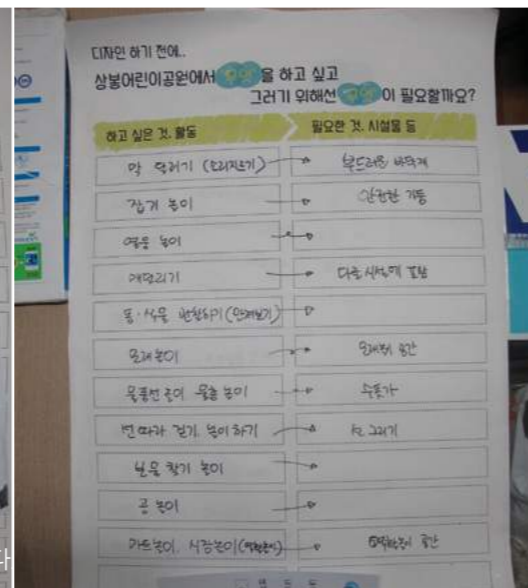 디자인 하기 전에..
상봉어린이공원에서 무엇 을 하고 싶고
그러기 위해선 무엇 이 필요할까요?
하고 싶은 것. 활동
필요한 것. 시설물 등
막 달리기 (소리지르기)
부드러운 바닥재
잡기 놀이
안전한 기둥
영웅 놀이
매달리기
다른 시설에 포함
동·식물 관찰하기 (만져보기)
모래놀이
모래 공간
물풍선 놀이 물총 놀이
수돗가
선 따라 걷기. 놀이하기
선 그리기
보물 찾기 놀이
공 놀이
카트놀이. 시장놀이 (역할놀이)
역할놀이 공간
다